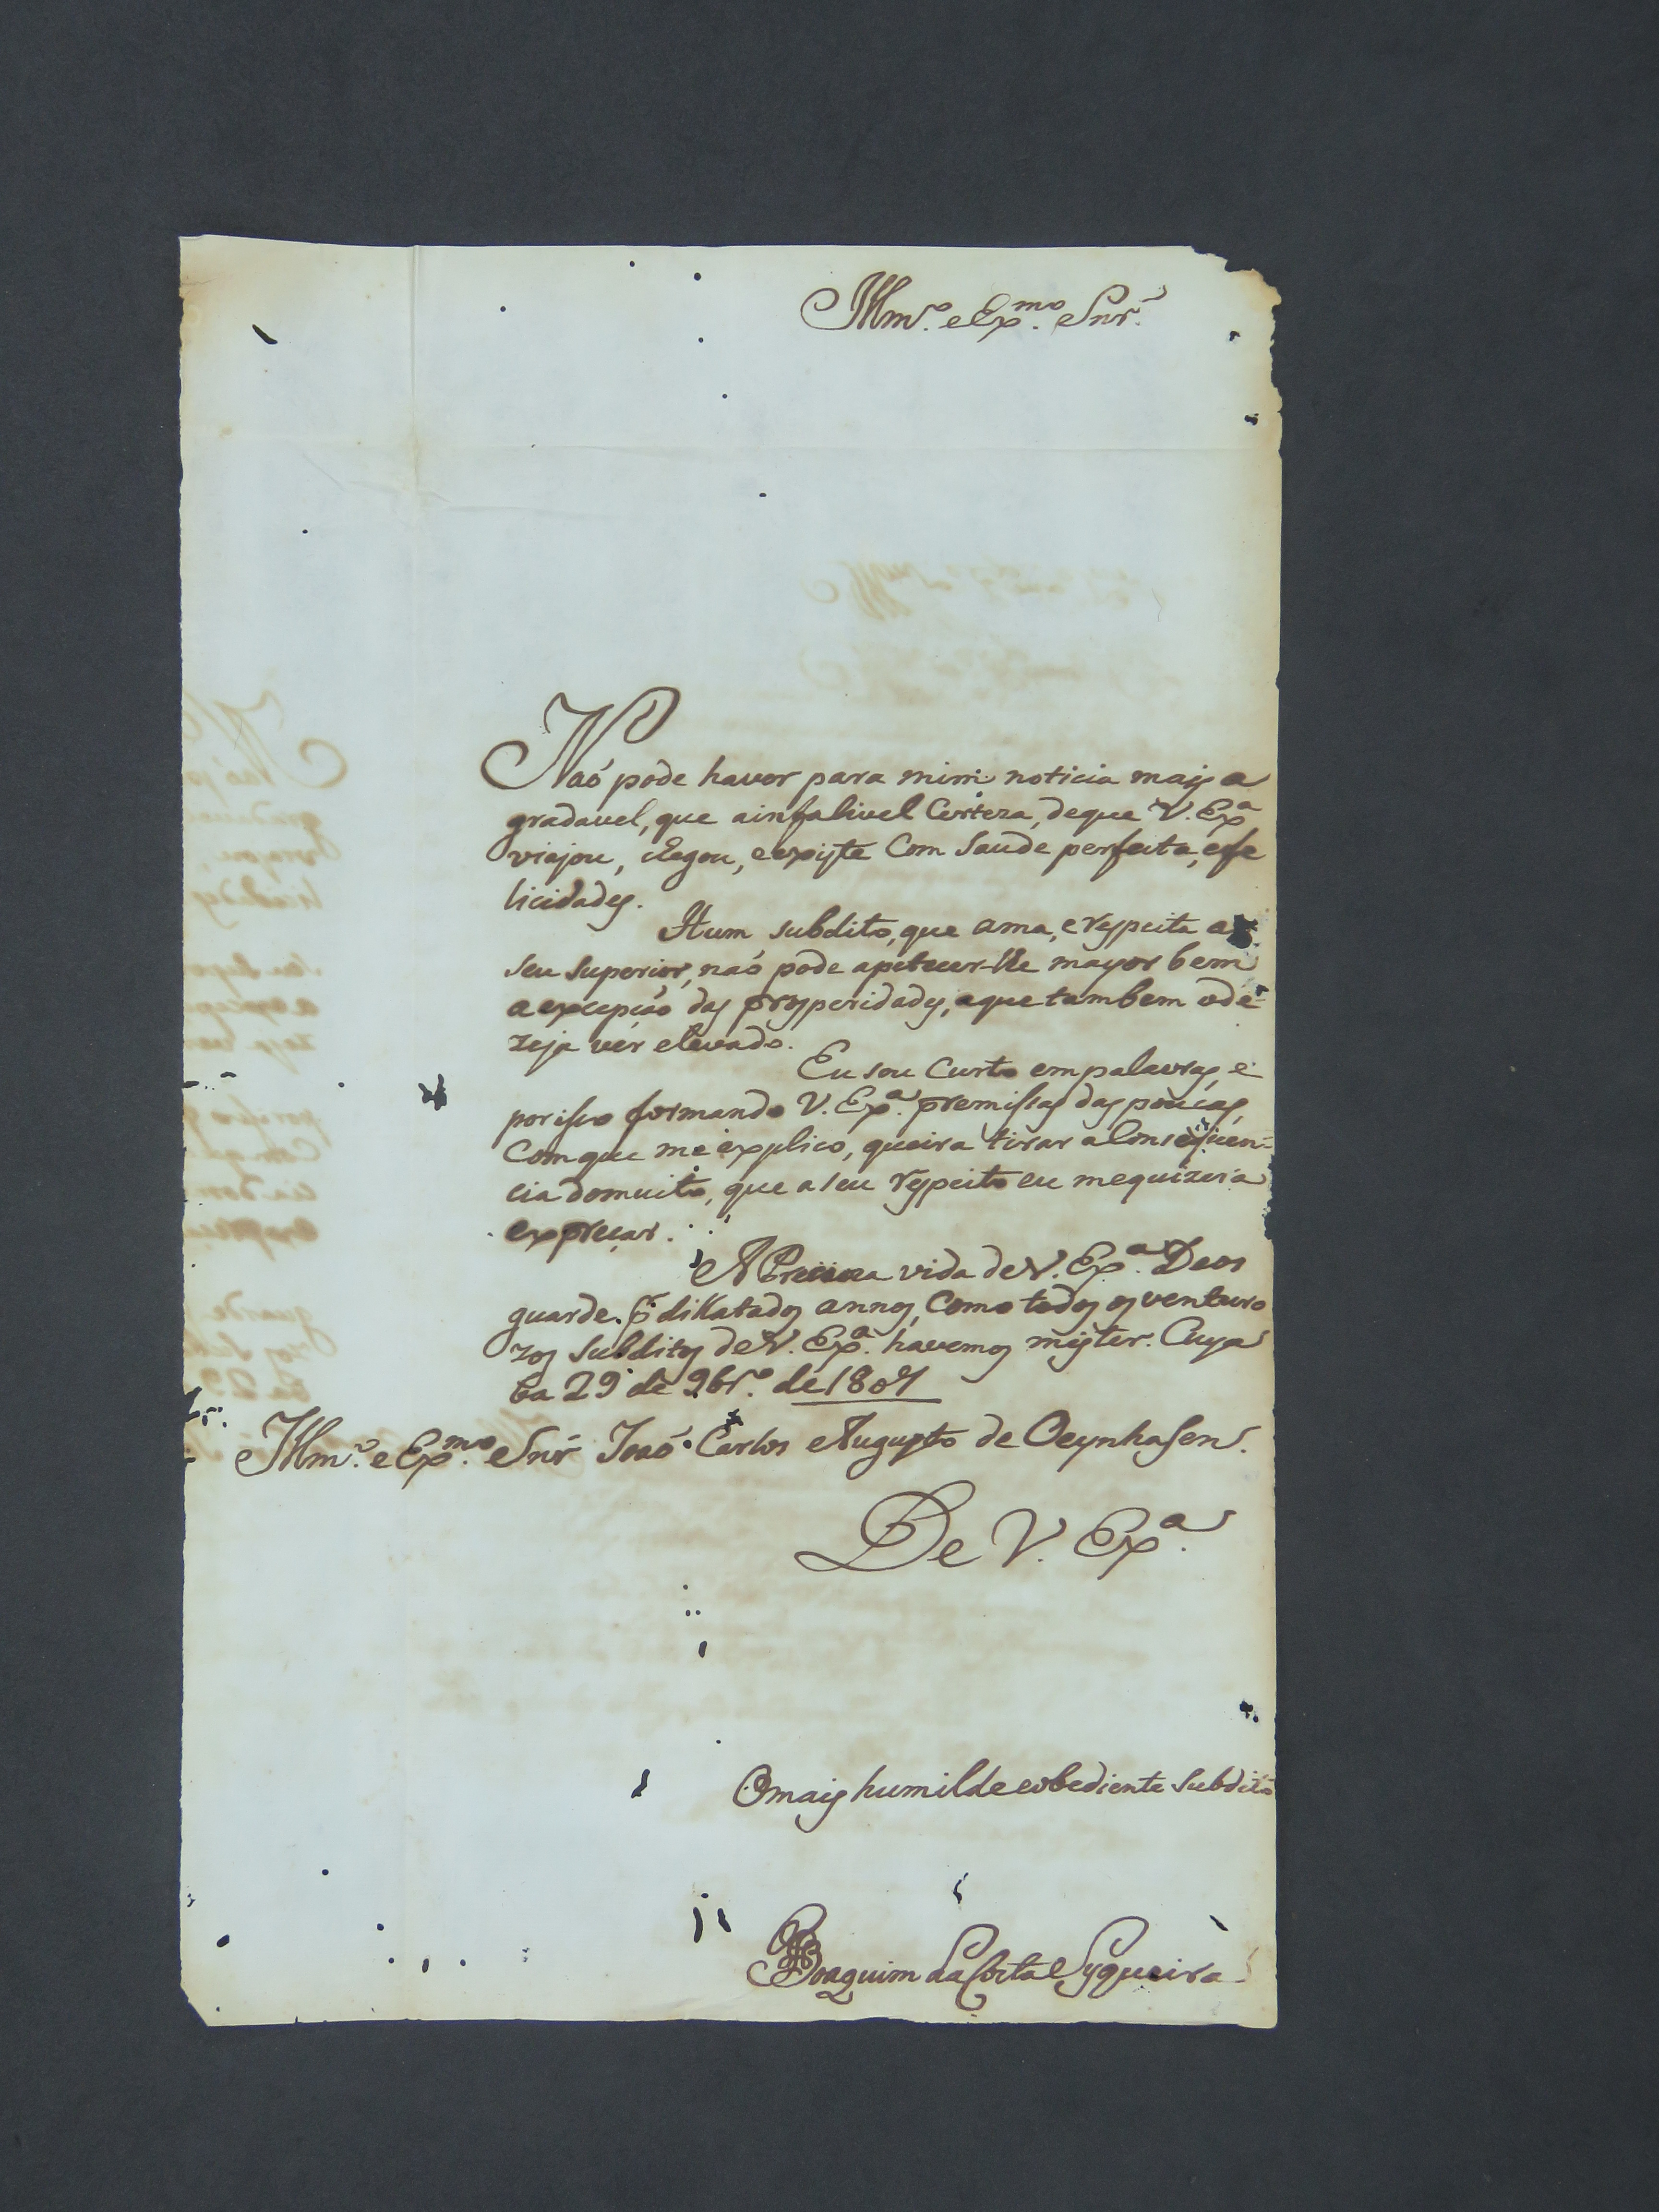 Illmo. e Exmo. Snr.
Naó pode haver para mim noticia mais a
gradavel, que ainfalivel Certeza, deque V. Exa
viajou, chegou, eexiste Com Saude perfeita, efe
licidades.
Hum subdito, que ama, erespeita ao
seu Superior, naó pode apetecer-lhe mayor bem
a excepçaó das prosperidades, aque tambem ode
zeja vér elevado.
Eu sou Curto empalavras, e
porisso formando V. Exa. premissas das poucas,
Comque me explico, queira tirar aConsequen-
cia domuito, que aseu respeito eu mequizera
expreçar.
A Precioza vida deV. Exa. Deos
guarde. pr. dillatados annos, Como todos os venturo
zos Subditos deV. Exa. havemos mister. Cuya
ba 29 de 9bro. de 1807
Illmo. e Exmo. Snr Joaó Carlos Augusto de Oeynhasen.
De V. Exa.
Omais humilde eobediente Subdito
Joaquim da Costa Syqueira